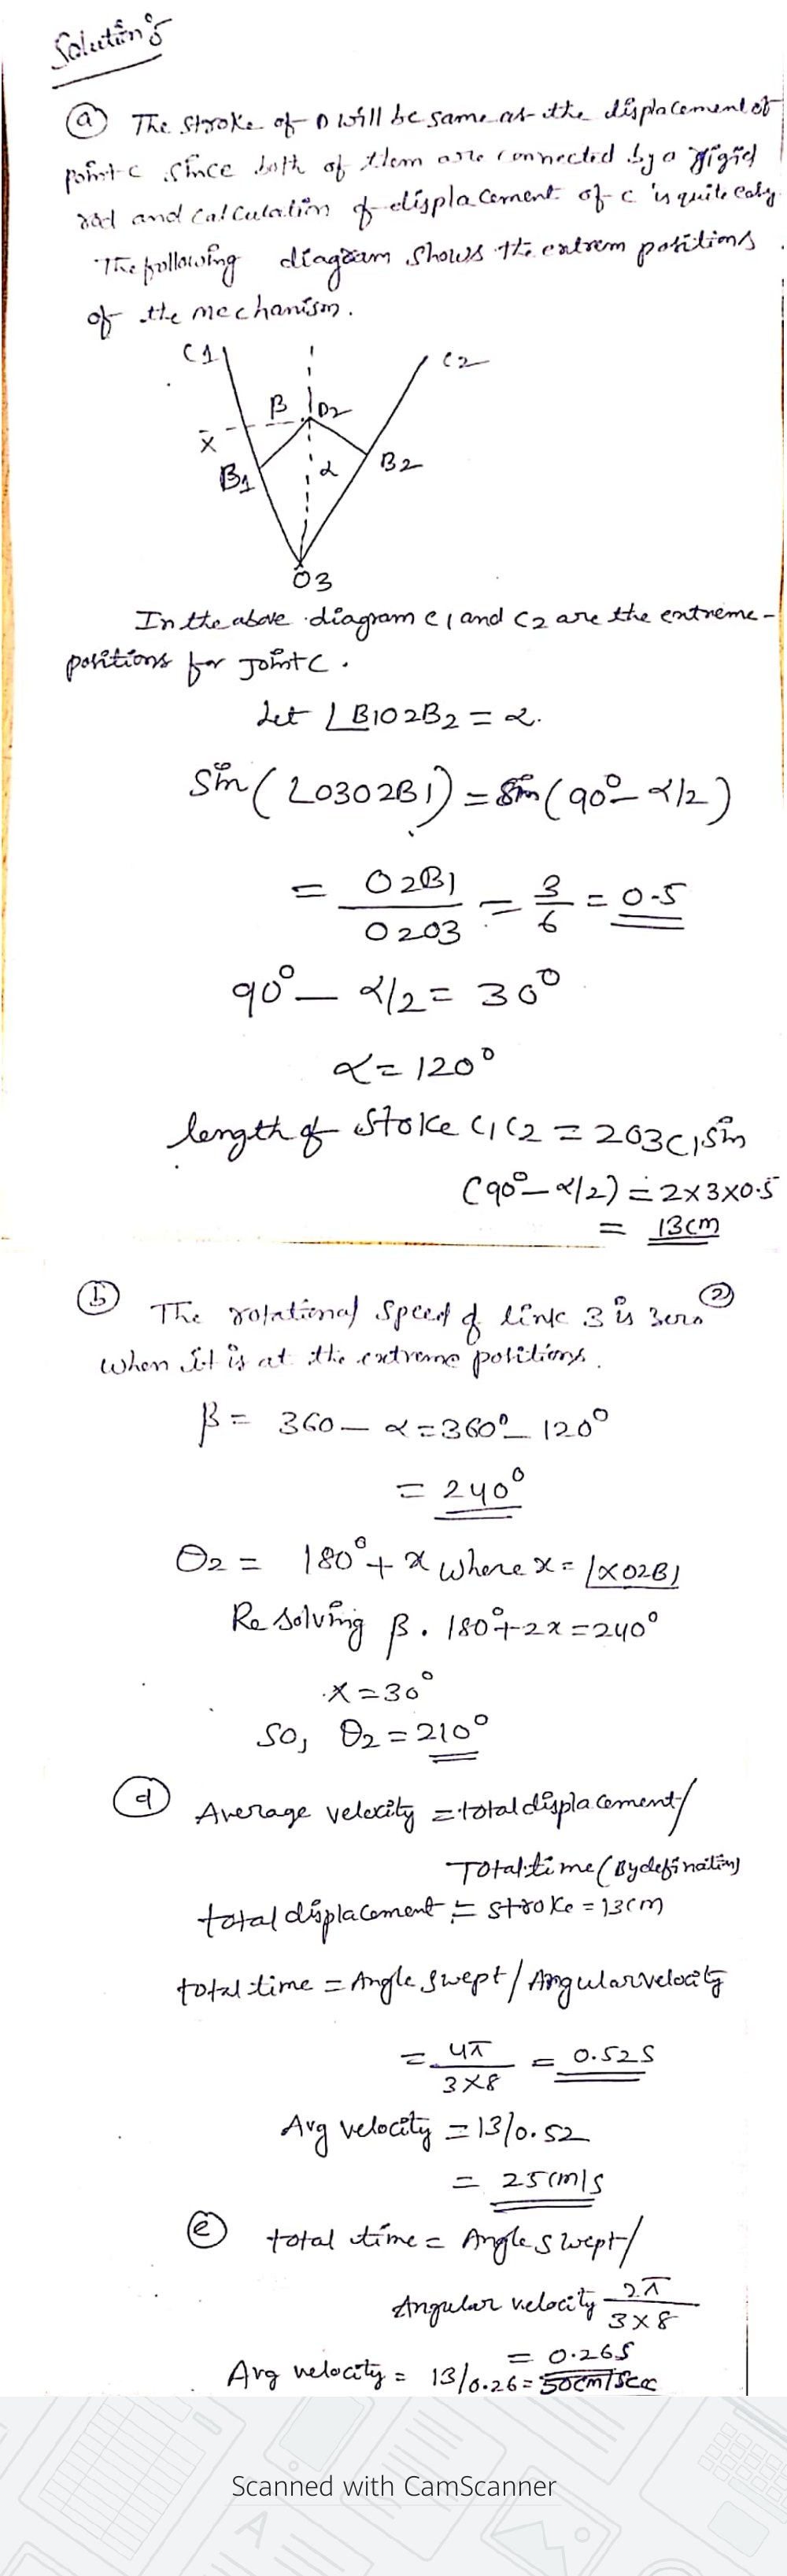 Solution:
(a) The stroke of D will be same as the displacement of
point C since both of them are connected by a rigid
rod and calculation of displacement of C is quite easy.
The following diagram shows the extrem positions
of the mechanism.
C1
C2
β
O2
X
B1
α
B2
O3
In the above diagram C1 and C2 are the extreme-
positions for Joint C.
Let ∠B1O2B2 = α.
Sin(∠O3O2B1) = Sin(90° - α/2)
= O2B1/O2O3 = 3/6 = 0.5
90° - α/2 = 30°
α = 120°
length of stoke C1C2 = 2O3C1 Sin
(90° - α/2) = 2×3×0.5
= 13cm
(b) The rotational speed of link 3 is zero (2)
when it is at the extreme positions.
β = 360 - α = 360° - 120°
= 240°
θ2 = 180° + x where x = ∠XO2B1
Resolving β. 180° + 2x = 240°
x = 30°
SO, θ2 = 210°
(d) Average velocity = total displacement/
Total time (By defination)
total displacement = stroke = 13cm
total time = Angle swept/Angular velocity
= 4π/3×8 = 0.52S
Avg velocity = 13/0.52
= 25cm/s
(e) total time = Angle swept/
Angular velocity 2π/3×8
= 0.26S
Avg velocity = 13/0.26 = 50cm/sec
Scanned with CamScanner